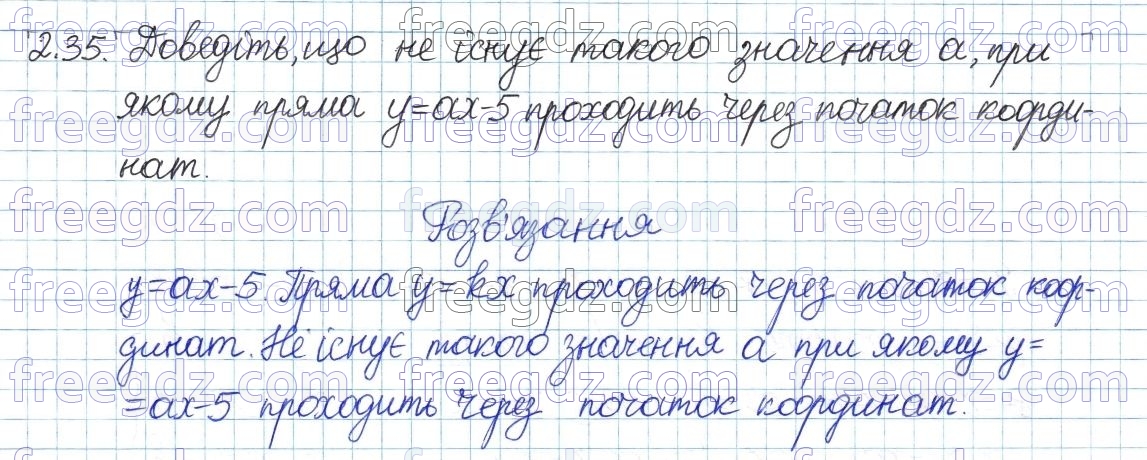 2.35. Доведіть, що не існує такого значення а, при
якому пряма y=ax-5 проходить через початок коорди-
нат.
Розв'язання
y=ax-5. Пряма y=kx проходить через початок коор-
динат. Не існує такого значення а при якому y=
=ax-5 проходить через початок координат.
freegdz.com